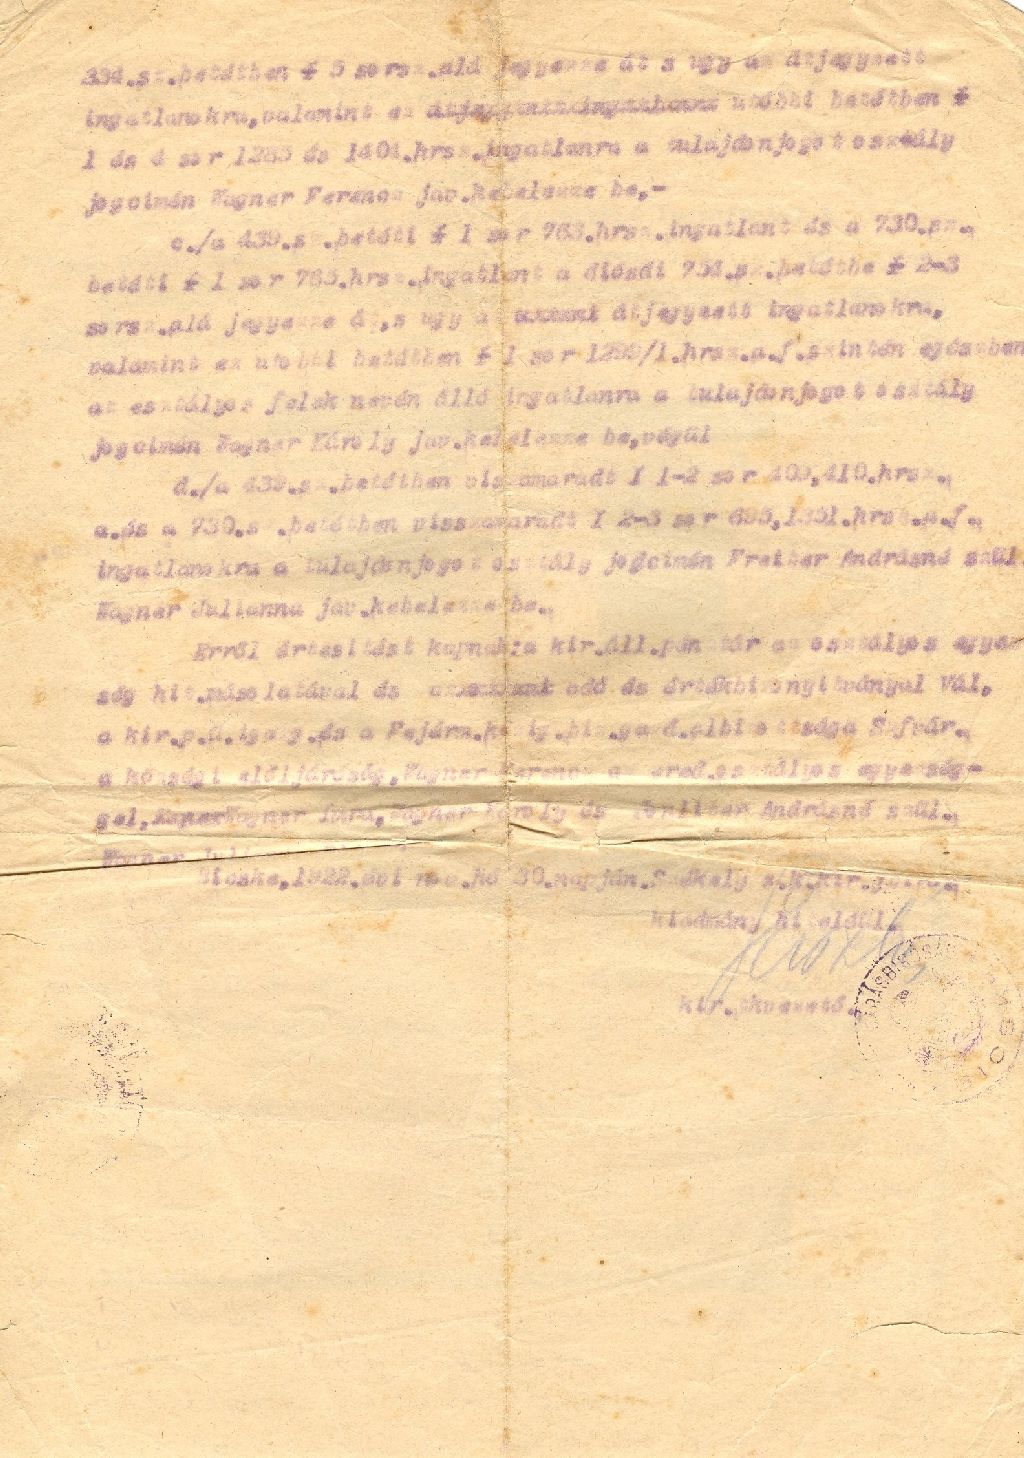 334.sz.betétben f 5 sorsz.alá jegyezze át s ugy az átjegyzett
ingatlanokra,valamint ez utóbbi betétben f
1 és 4 sor 1285 és 1404.hrsz.ingatlanra a tulajdonjogot osztály
jogcimén Wagner Ferencz jav.kebelezze be,-
c./a 439.sz.betéti f 1 sor 763.hrsz.ingatlant és a 730.sz.
betéti f 1 sor 765.hrsz.ingatlant a diósdi 754.sz.betétbe f 2-3
sorsz.alá jegyezze át,s ugy az átjegyzett ingatlanokra,
valamint ez utobbi betétben f 1 sor 1295/1.hrsz.a.f.szintén egészben
az osztályos felek nevén álló ingatlanra a tulajdonjogot osztály
jogcimén Wagner Károly jav.kebelezze be,végül
d./a 439.sz.betétben visszamaradt I 1-2 sor 409,410.hrsz.
a.és a 730.sz.betétben visszamaradt I 2-3 sor 695,1351.hrsz.a.f.
ingatlanokra a tulajdonjogot osztály jogcimén Freiter Andrásné szül.
Wagner Julianna jav.kebelezze be.
Erről értesitést kapnak:a kir.áll.pénztár az osztályos egyes
ség hit.másolatával és adó és értékbizonyitványal Vál,
a kir.p.ü.igazg.és a Fejérm.közig.biz.gazd.albizottsága Szfvár.
a községi elöljáróság,Wagner Ferencz az ered.osztályos egyesség-
gel,Wagner Mára,Wagner Károly és Andrásné szül.
Wagner
Bicske,1922.évi nov.hó 30.napján.Székely s.k.kir.
kiadmány hiteléül.
kir.tkvezető.
JÁRÁSBIRÓSÁG
BICS